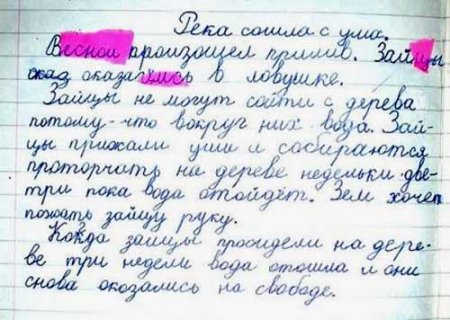 Река сошла с ума.
Весной произошел прилив. Зайцы
оказ оказались в ловушке.
Зайцы не могут сойти с дерева
потому-что вокруг них вода. Зай-
цы прижали уши и собираются
проторчать на дереве недельки две-
три пока вода отойдёт. Зем хочет
пожать зайцу руку.
Кокда зайцы просидели на дере-
ве три недели вода отошла и они
снова оказолись на свободе.